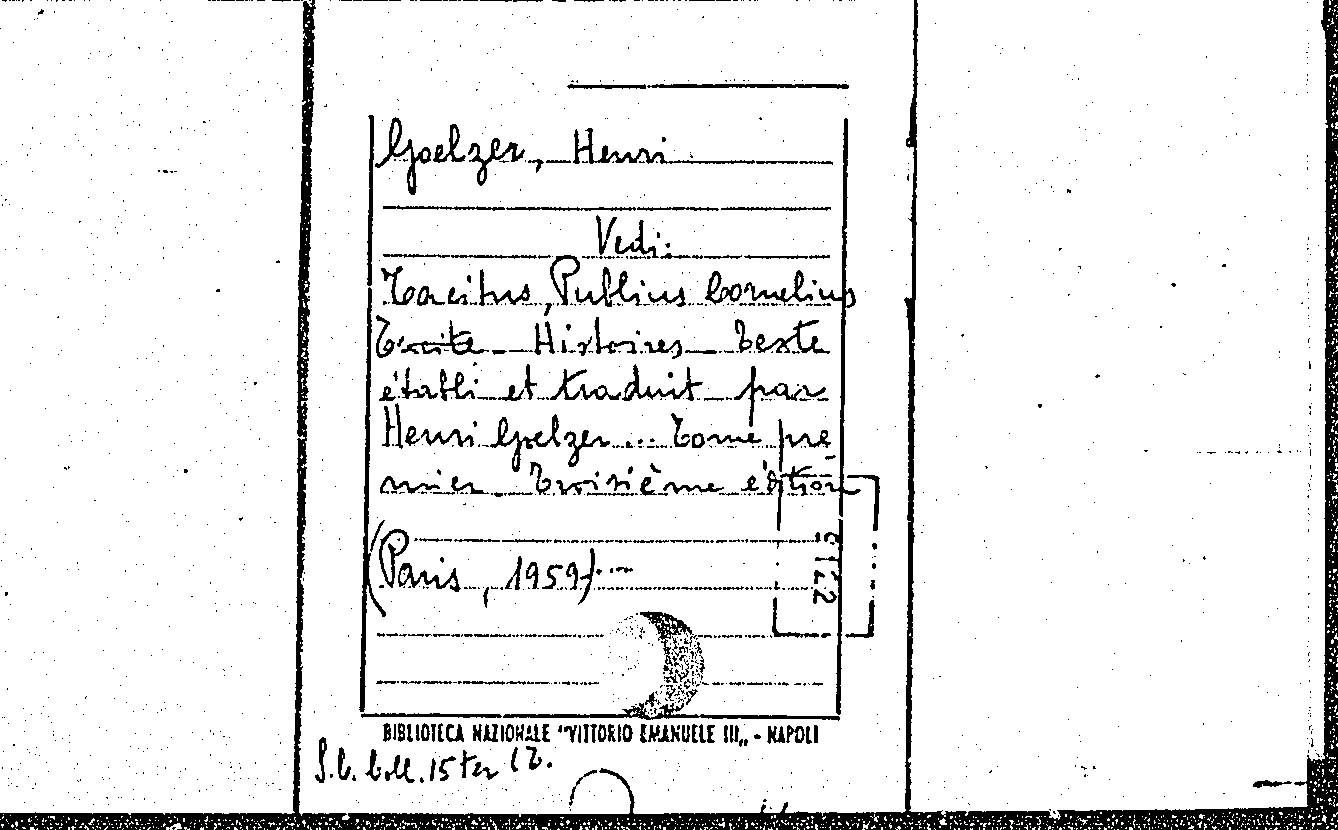 Goelzer, Henri
Vedi:
Tacitus, Publius Cornelius
Tacite - Histoires - Texte
établi et traduit par
Henri Goelzer ... Tome pre-
mier. Troisième édition
(Paris, 1959) ...
BIBLIOTECA NAZIONALE "VITTORIO EMANUELE III„ - NAPOLI
S.C. Coll. 15 ter